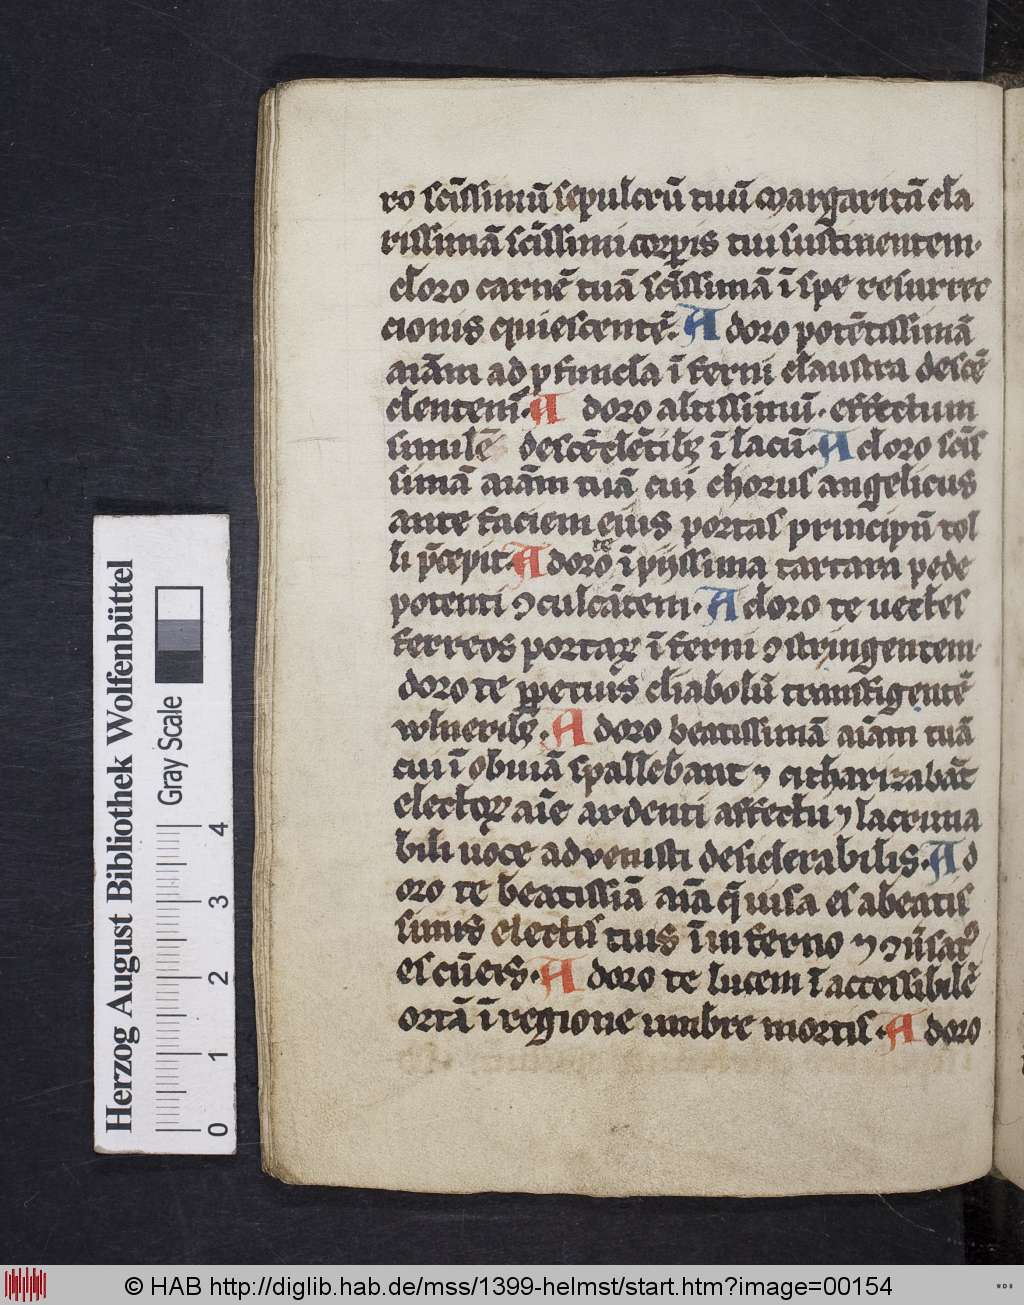 ro scīssimū sepulcrū tuū margaritā cla
rissimā scīssimi corporis tui sustinentem·
doro carnē tuā scīssimā ī spe resurrec
cionis quiescentē. Adoro potētissimā
aīam ad pfunda īferni claustra descē
dentem. Adoro altissimū· effectum
similē descēdētibꝫ ī lacū. Adoro scīs
simā aīam tuā cui chorus angelicus
ante faciem eius portas principū tol
li p̄cepit. Adoro te ī piissima tartara pede
potenti ꝯculcātem. Adoro te uectes
ferreos portaꝝ īferni ꝯstringentem·
doro te ppetuis diabolū transfigentē
wlneribꝫ. Adoro beatissimā aīam tuā
cui ī obuiā spallebant ⁊ citharizabāt
electoꝝ aīe ardenti affectu ⁊ lacrima
bili uoce aduenisti desiderabilis. Ad
oro te beatissīā aīā q̄ uisa es abeatis
simis electis tuis ī inferno ⁊ ꝯūsatꝰ
es cū eis. Adoro te lucem īaccessibilē
ortā ī regione umbre mortis. Adoro
Herzog August Bibliothek Wolfenbüttel
Gray Scale
0 1 2 3 4
© HAB http://diglib.hab.de/mss/1399-helmst/start.htm?image=00154